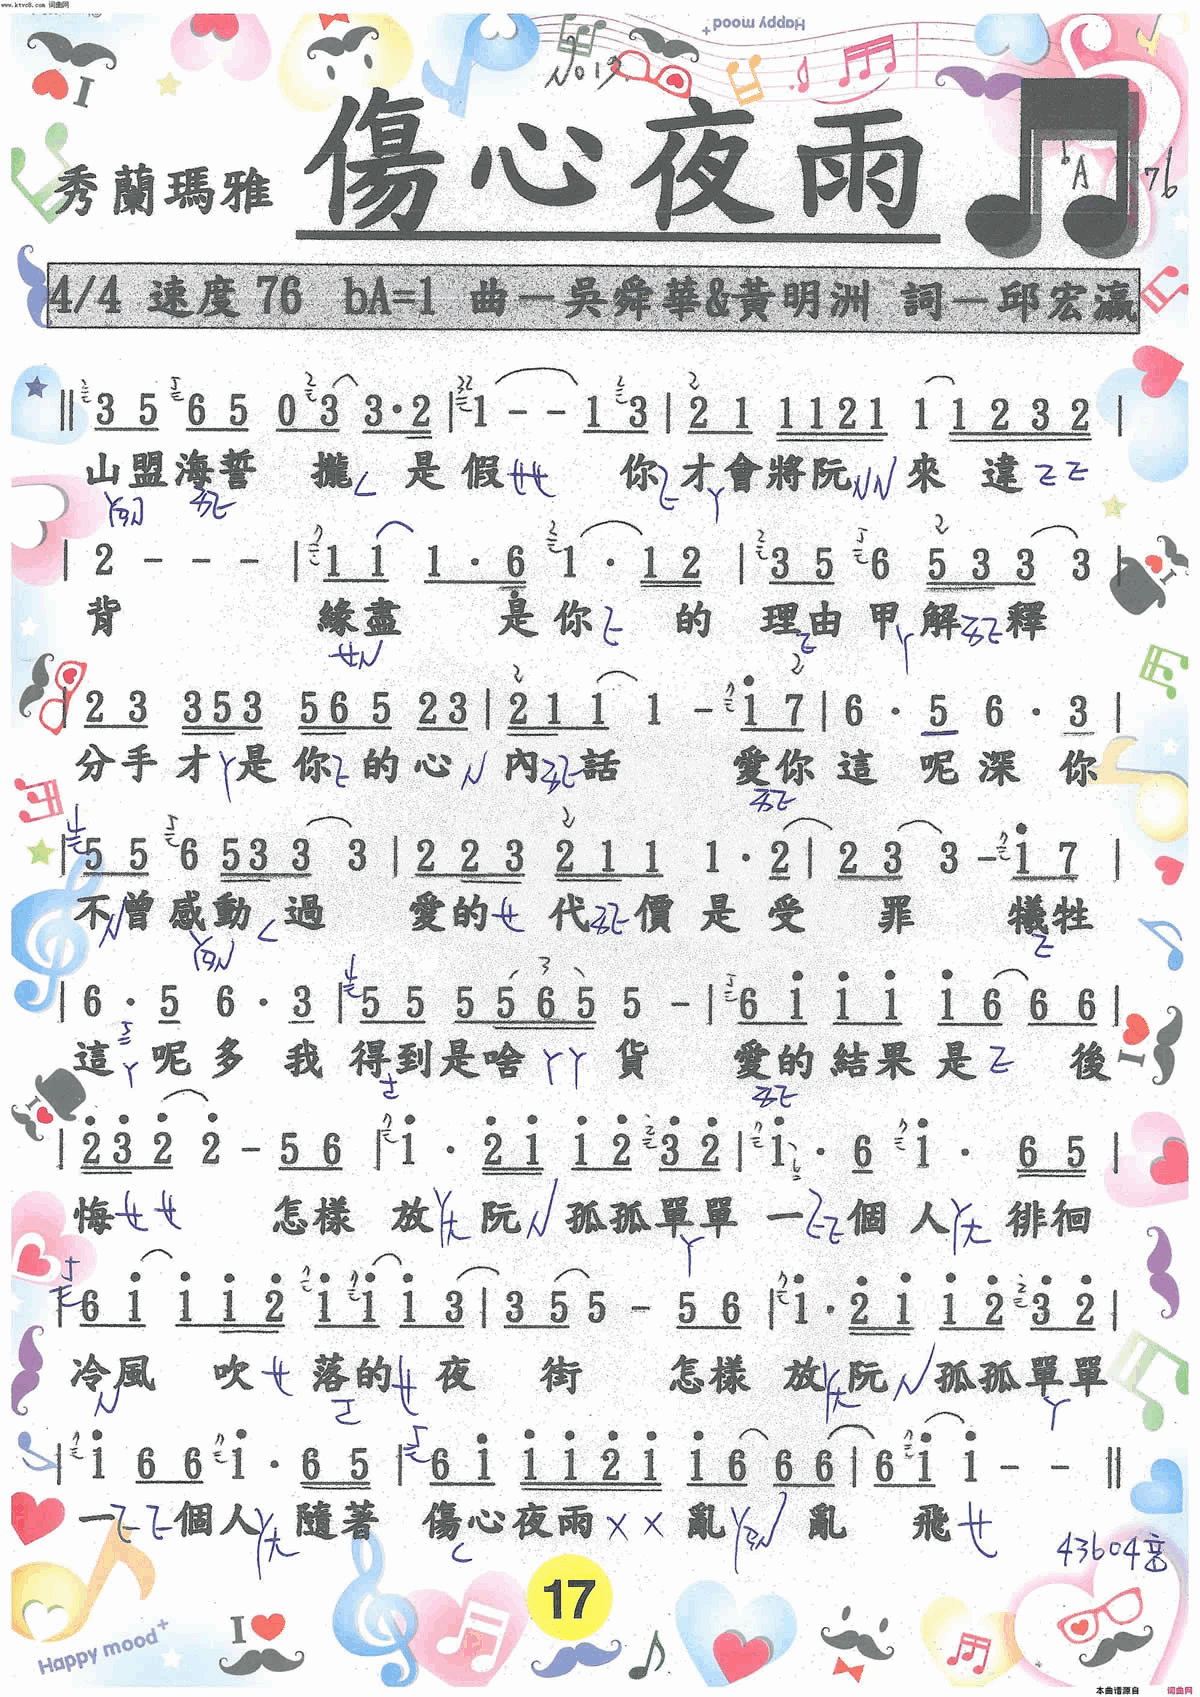 www.ktvc8.com 词曲网
Happy mood+
No19
傷心夜雨
秀蘭瑪雅
bA 76
4/4 速度 76 bA=1 曲－吳舜華&黃明洲 詞－邱宏瀛
‖ 3 5 6 5 0 3 3·2 | 1 - - 1 3 | 2 1 1121 1 1 2 3 2 |
山盟海誓 攏 是假 你 才會將阮 來 違
| 2 - - - | 1 1 1 · 6 1 · 1 2 | 3 5 6 5 3 3 3 |
背 緣盡 是你 的 理由 甲 解 釋
| 2 3 3 5 3 5 6 5 2 3 | 2 1 1 1 - 1 7 | 6 · 5 6 · 3 |
分手才 是 你 的心 內 話 愛你這 呢深 你
| 5 5 6 5 3 3 3 | 2 2 3 2 1 1 1 · 2 | 2 3 3 - 1 7 |
不曾感動 過 愛的 代 價是受 罪 犧牲
| 6 · 5 6 · 3 | 5 5 5 5 6 5 5 - | 6 1 1 1 1 6 6 6 |
這 呢多 我 得到是啥 貨 愛的結果是 後
| 2 3 2 2 - 5 6 | 1 · 2 1 1 2 3 2 | 1 · 6 1 · 6 5 |
悔 怎樣 放 阮 孤孤單單 一 個人 徘徊
6 1 1 1 2 1 1 1 3 | 3 5 5 - 5 6 | 1 · 2 1 1 2 3 2 |
冷風 吹 落的 夜 街 怎樣 放 阮 孤孤單單
| 1 6 6 1 · 6 5 | 6 1 1 1 2 1 1 6 6 6 | 6 1 1 - - ‖
一 個人 隨著 傷心夜雨 × × 亂 亂 飛
43604音
17
Happy mood+
I
本曲谱源自 词曲网